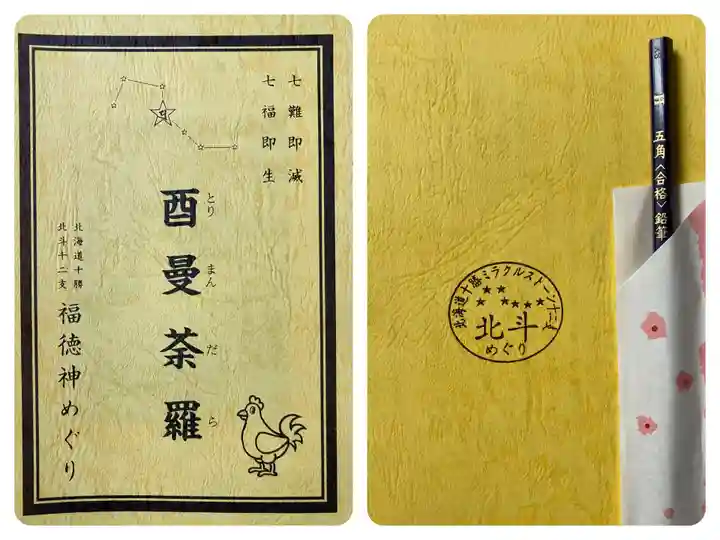 七難即滅
七福即生
酉曼荼羅
とり
まん
だ
ら
北海道十勝
北斗十二支
福徳神めぐり
五角〈合格〉鉛筆
北海道十勝ミラクルストーン十二支
北斗
めぐり